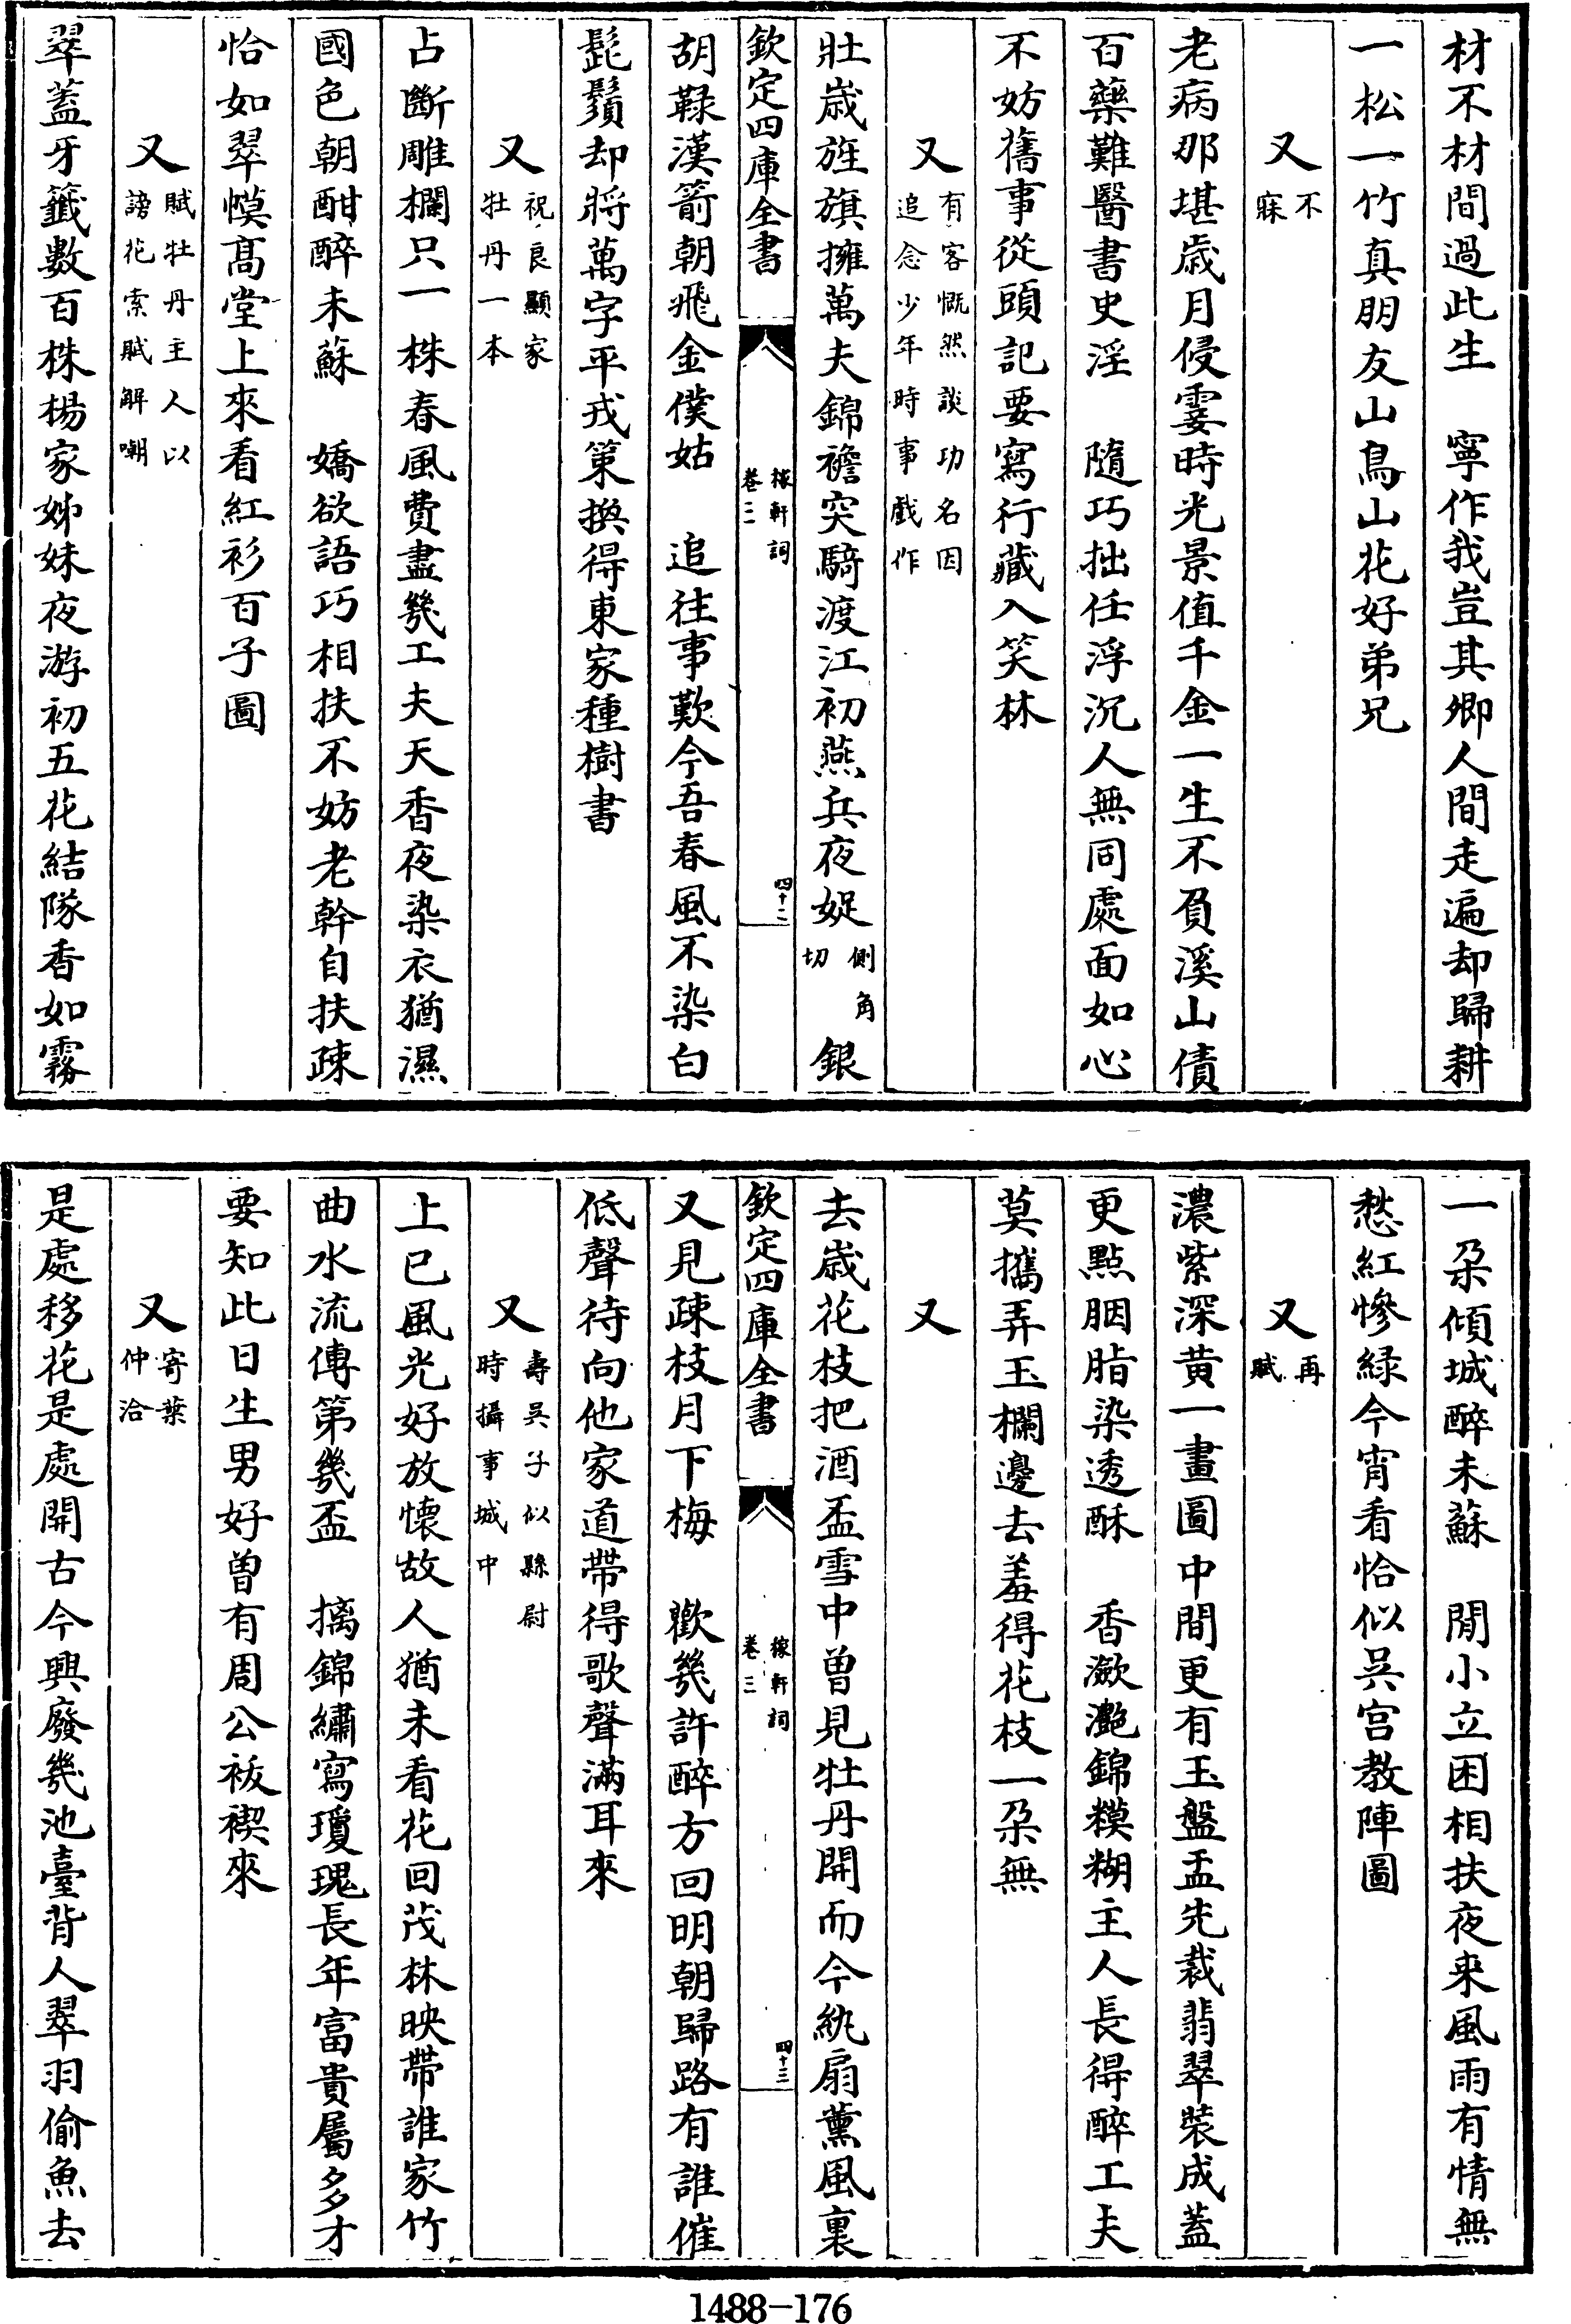 材不材間過此生　寧作我豈其卿人間走遍却歸耕
一松一竹真朋友山鳥山花好弟兄
又不寐
老病那堪歳月侵霎時光景值千金一生不負溪山債
百藥難醫書史淫　隨巧拙任浮沉人無同處面如心
不妨舊事從頭記要寫行藏入笑林
又有客慨然談功名因追念少年時事戲作
壯歳旌旗擁萬夫錦襜突騎渡江初燕兵夜娖側角切銀
欽定四庫全書　稼軒詞卷三　四十二
胡䩮漢箭朝飛金僕姑　追往事歎今吾春風不染白
髭鬚却將萬字平戎策換得東家種樹書
又祝良顯家牡丹一本
占斷雕欄只一株春風費盡幾工夫天香夜染衣猶濕
國色朝酣醉未蘇　嬌欲語巧相扶不妨老幹自扶疎
恰如翠幙髙堂上來看紅衫百子圖
又賦牡丹主人以謗花索賦解嘲
翠蓋牙籤數百株楊家姊妹夜游初五花結隊香如霧
一朶傾城醉未蘇　閒小立困相扶夜来風雨有情無
愁紅慘緑今宵看恰似呉宫教陣圖
又再賦
濃紫深黄一畫圖中間更有玉盤盂先裁翡翠裝成蓋
更點胭脂染透酥　香瀲灧錦糢糊主人長得醉工夫
莫攜弄玉欄邊去羞得花枝一朶無
又
去歳花枝把酒盃雪中曽見牡丹開而今紈扇薰風裏
欽定四庫全書　稼軒詞卷三　四十三
又見疎枝月下梅　歡幾許醉方回明朝歸路有誰催
低聲待向他家道帶得歌聲滿耳來
又壽呉子似縣尉時攝事城中
上巳風光好放懐故人猶未看花回茂林映帶誰家竹
曲水流傳第幾盃　摛錦繡寫瓊瑰長年富貴屬多才
要知此日生男好曽有周公祓禊來
又寄葉仲洽
是處移花是處開古今興廢幾池臺背人翠羽偷魚去
1488—176